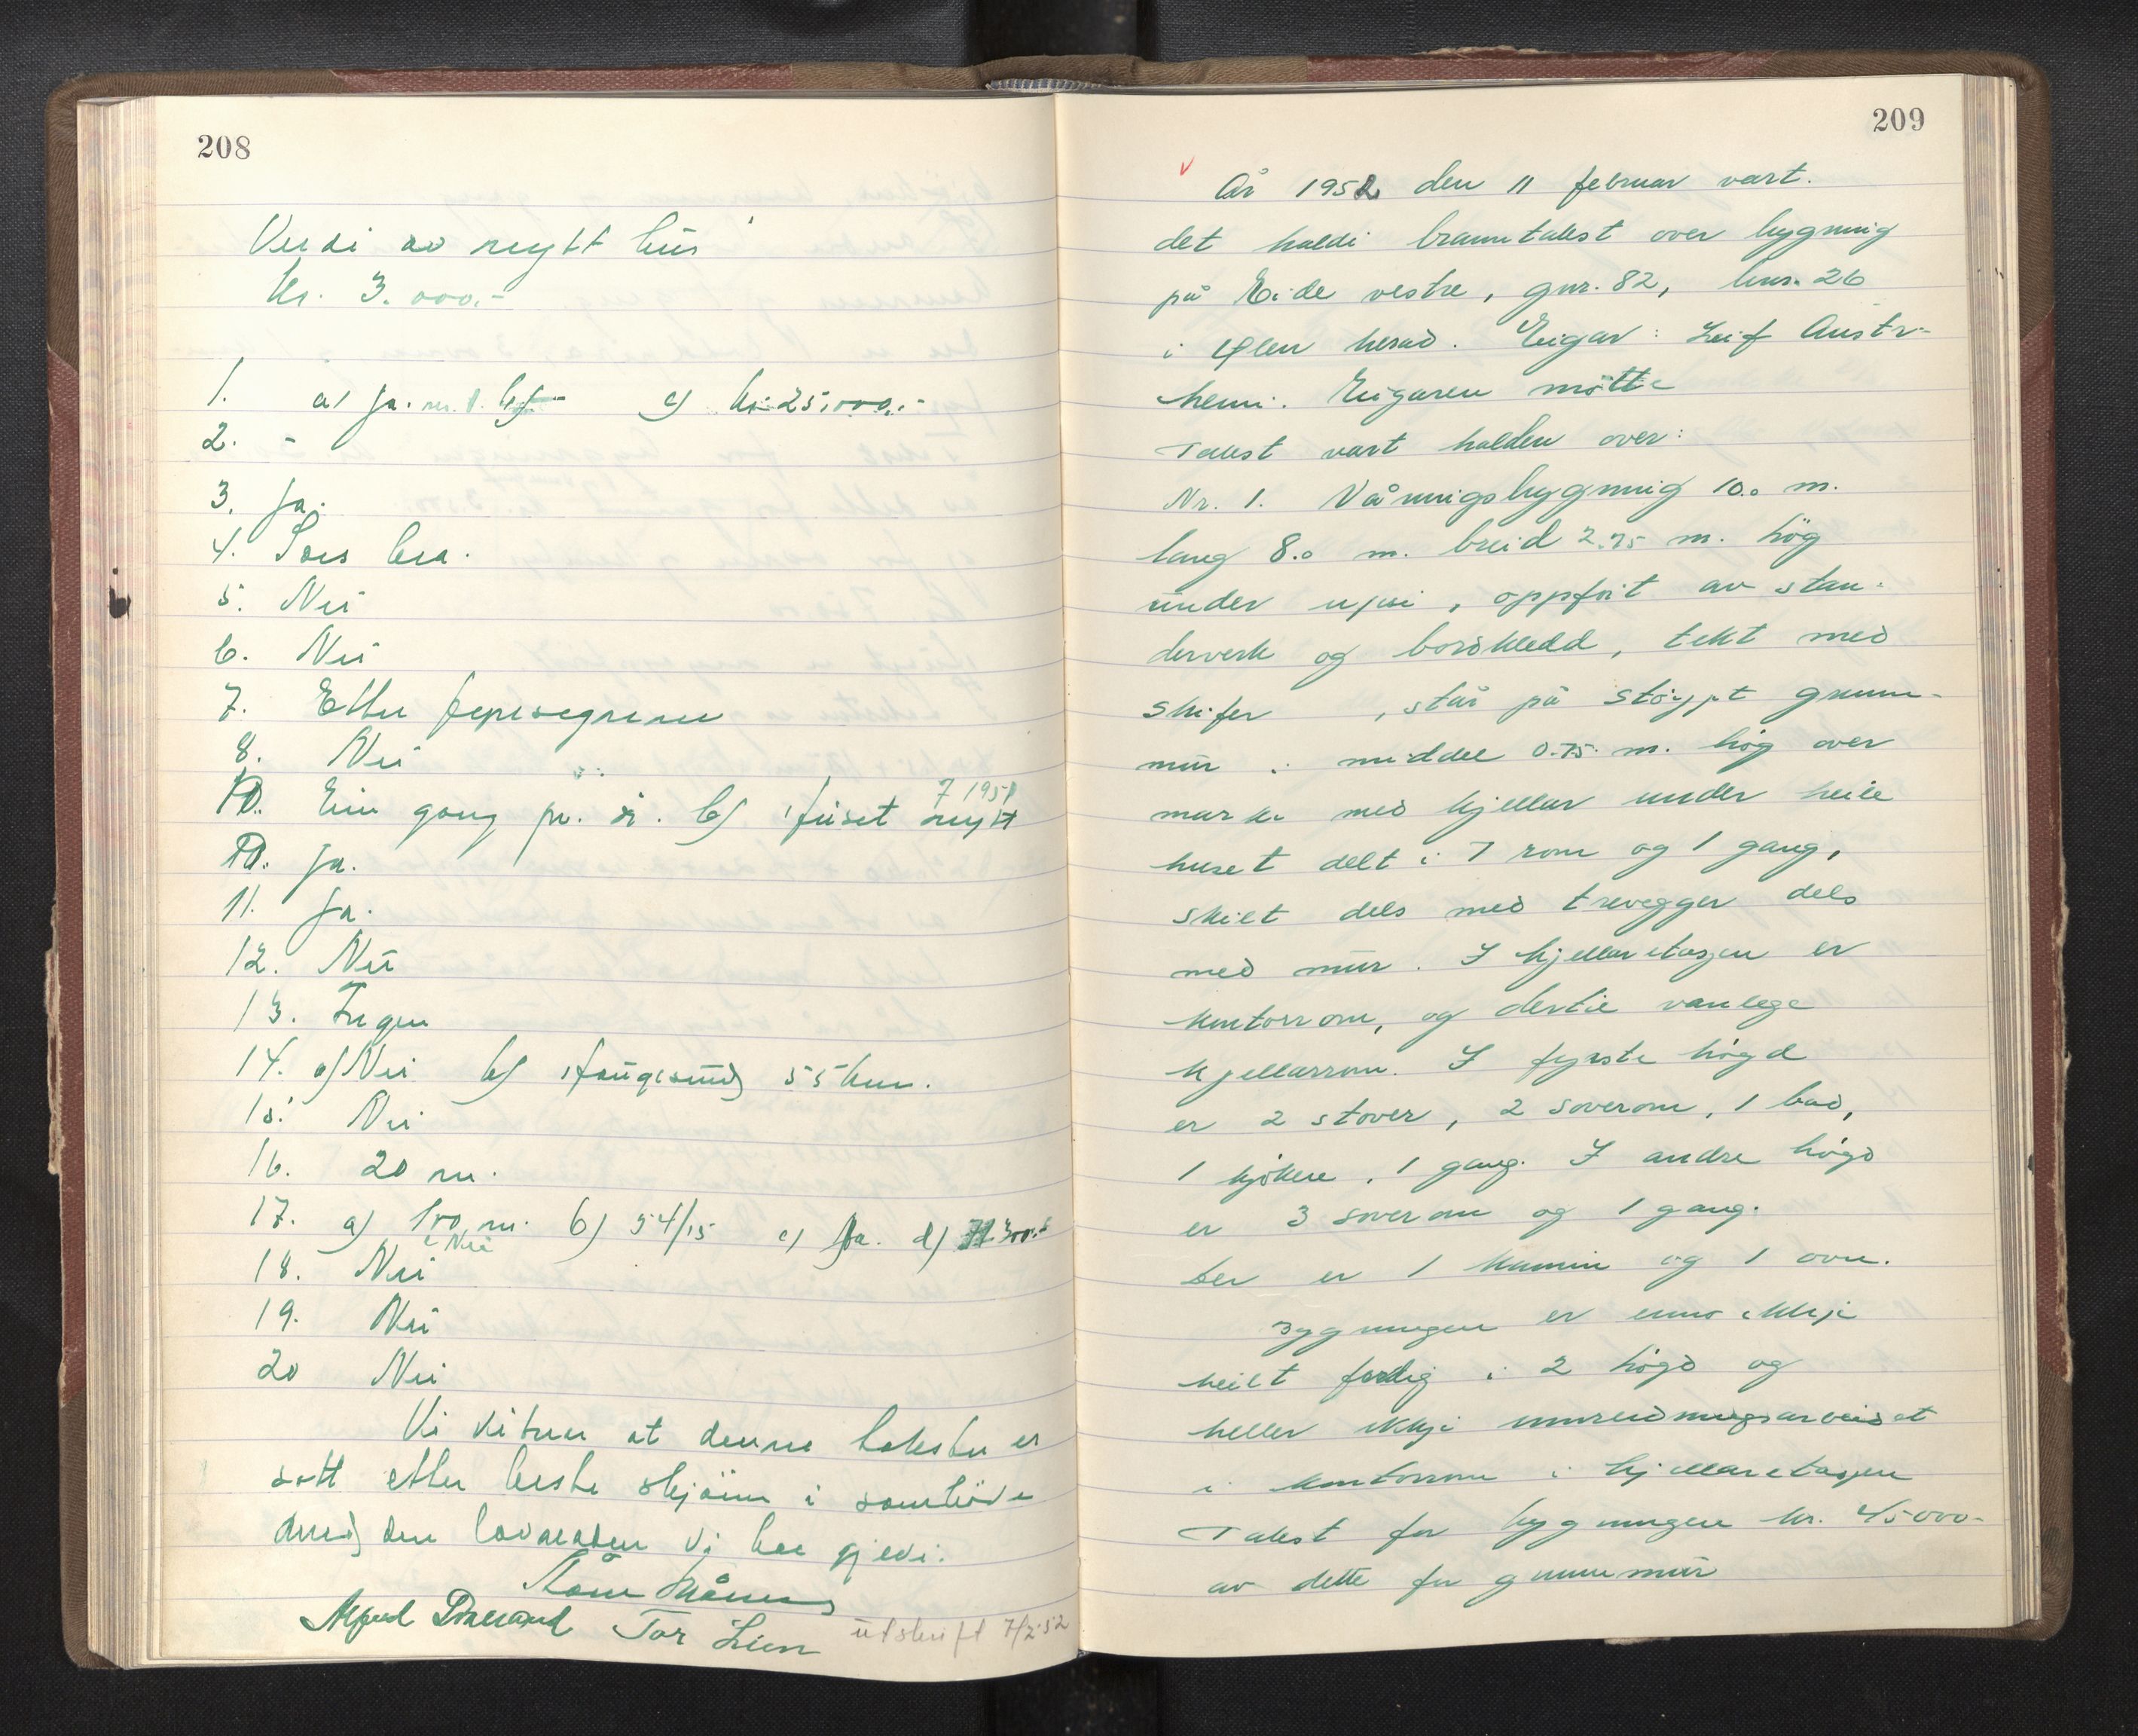 208
Verdi av nytt hus
kr. 3.000.-
1. a) Ja. nr. 1. c) kr. 25.000.-
2. -
3. Ja.
4. Sers bra.
5. Nei
6. Nei
7. Etter
8. Nei
10. Ein gong pr. år. b) Huset nytt
7 1951
10. Ja.
11. Ja.
12. Nei
13. Ingen
14. a) Nei b) Haugesund 55 km.
15. Nei
16. 20 m.
17. a) 100 m. b) 54/15 c) Ja. d) 300.-
Nei
18. Nei
19. Nei
20 Nei
Vi vitnar at denne taksten er
sett etter beste skjönn i samhöve
med den lovnaden vi har gjevi.
Tor Lien
utskrift 7/2 52
209
V
År 1952 den 11 februar vart.
det haldi branntakst over bygning
på Eide vestre, gnr. 82, bnr. 26
i Ølen herad. Eigar: Leif Austr-
heim. Eigaren møtte
Takst vart halden over:
Nr. 1. Våningsbygning 10.0 m.
lang 8.0 m. breid 2.75 m. høg
under upsi, oppført av sten-
derverk og bordkledd, tekt med
skifer , står på støypt grunn-
mur i middel 0.75 m. høg over
marki med kjellar under heile
huset delt i 7 rom og 1 gang,
skilt dels med trevegger dels
med mur. I kjellaretasjen er
kontorrom, og dertil vanlege
kjellarrom. I fyrste høgd
er 2 stover, 2 soverom, 1 bad,
1 kjøken, 1 gang. I andre høgd
er 3 soverom og 1 gang.
Der er 1 kamin og 1 omn.
Bygningen er enno ikkje
heilt ferdig i 2 høgd og
heller ikkje innreidningsarbeidet
i kontorrom i kjellaretasjen
Takst for bygningen kr. 45000-
av dette for grunnmur